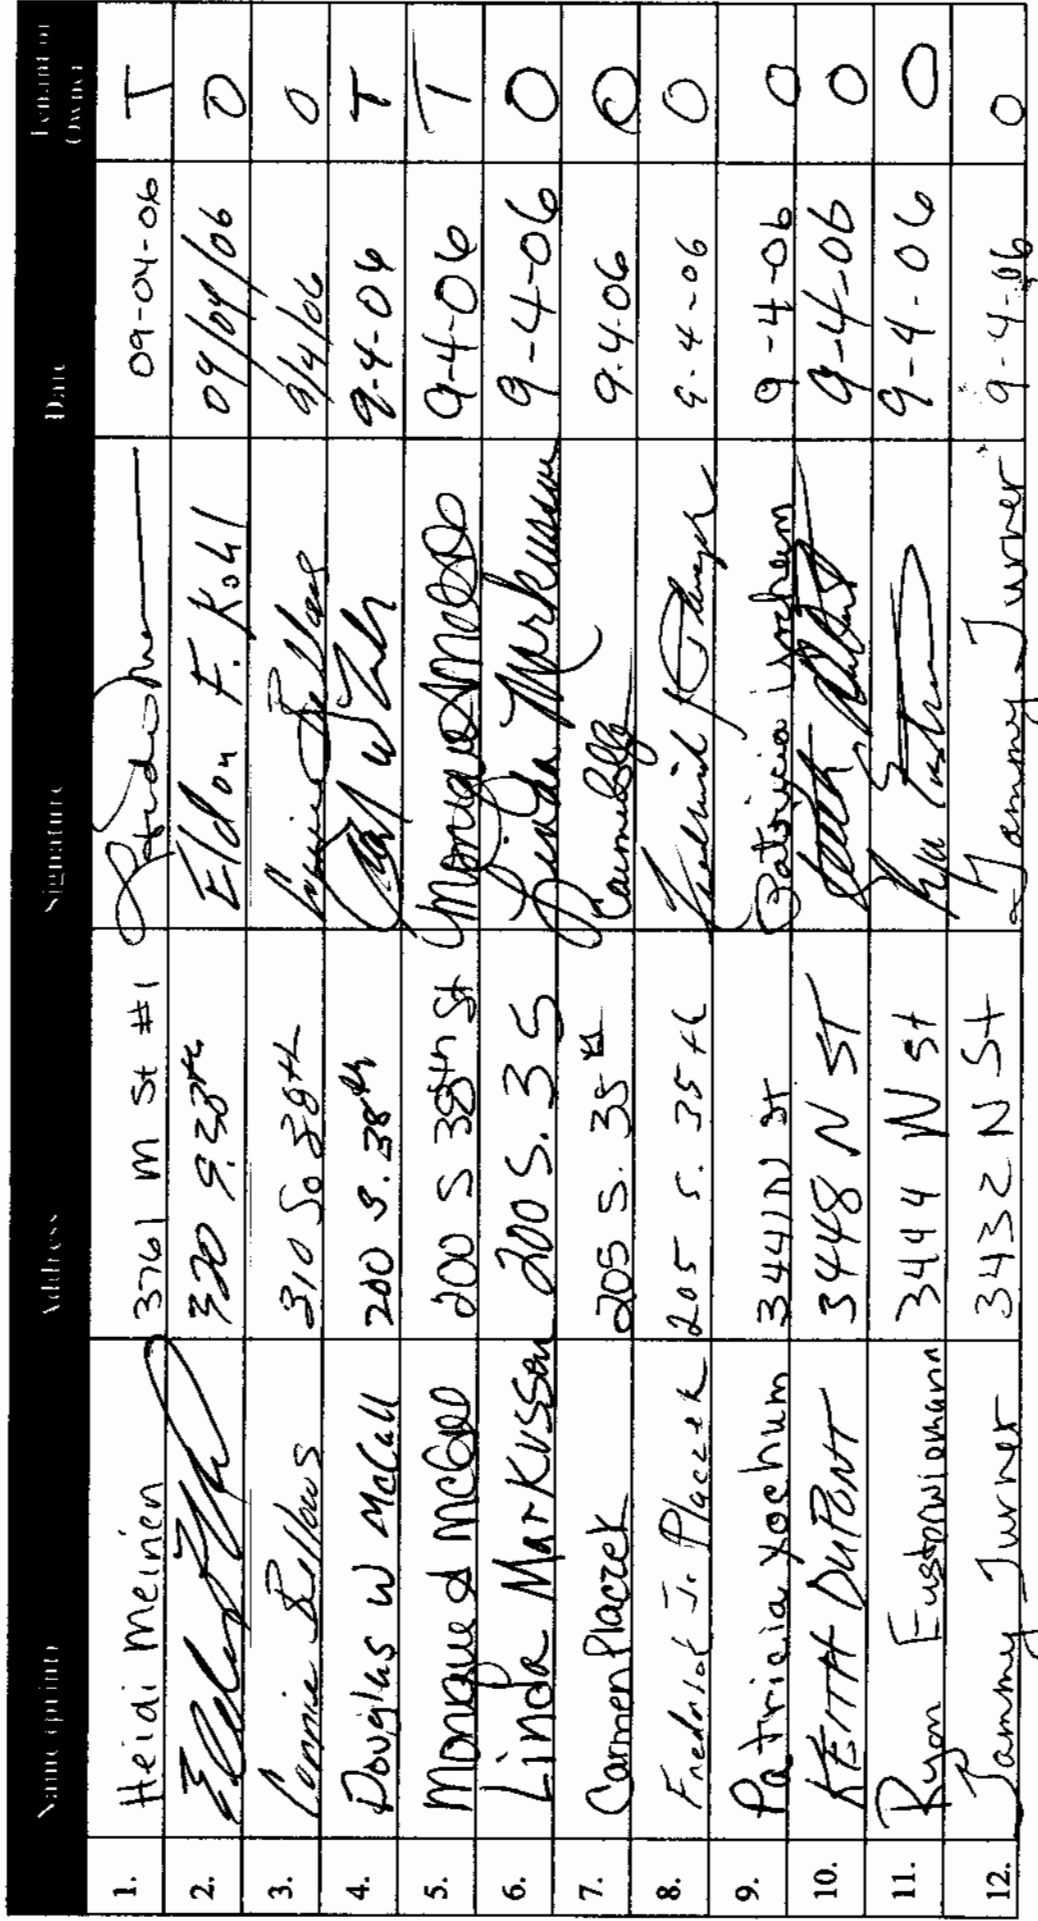 Name (print) Address Signature Date Tenant or Owner
1. Heidi Meinen 3761 M St #1 09-04-06 T
2. Eldon F. Kohl 09/04/06 O
3. Connie Bellows 310 So 38th Connie Bellows 9/4/06 O
4. Douglas W McCall 200 S. 38th 9-4-06 T
5. Monique A McGee 200 S 38th St 9-4-06 T
6. Linda Markussen 200 S. 35 Linda Markussen 9-4-06 O
7. Carmen Placzek 205 S. 35th 9-4-06 O
8. Fredrick J. Placzek 205 S. 35th 9-4-06 O
9. Patricia Yochum 3441 N St Patricia Yochum 9-4-06 O
10. KEITH DUPONT 3448 N ST 9-4-06 O
11. Ryan 3444 N St 9-4-06 O
12. Tammy Turner 3432 N St Tammy Turner 9-4-06 O